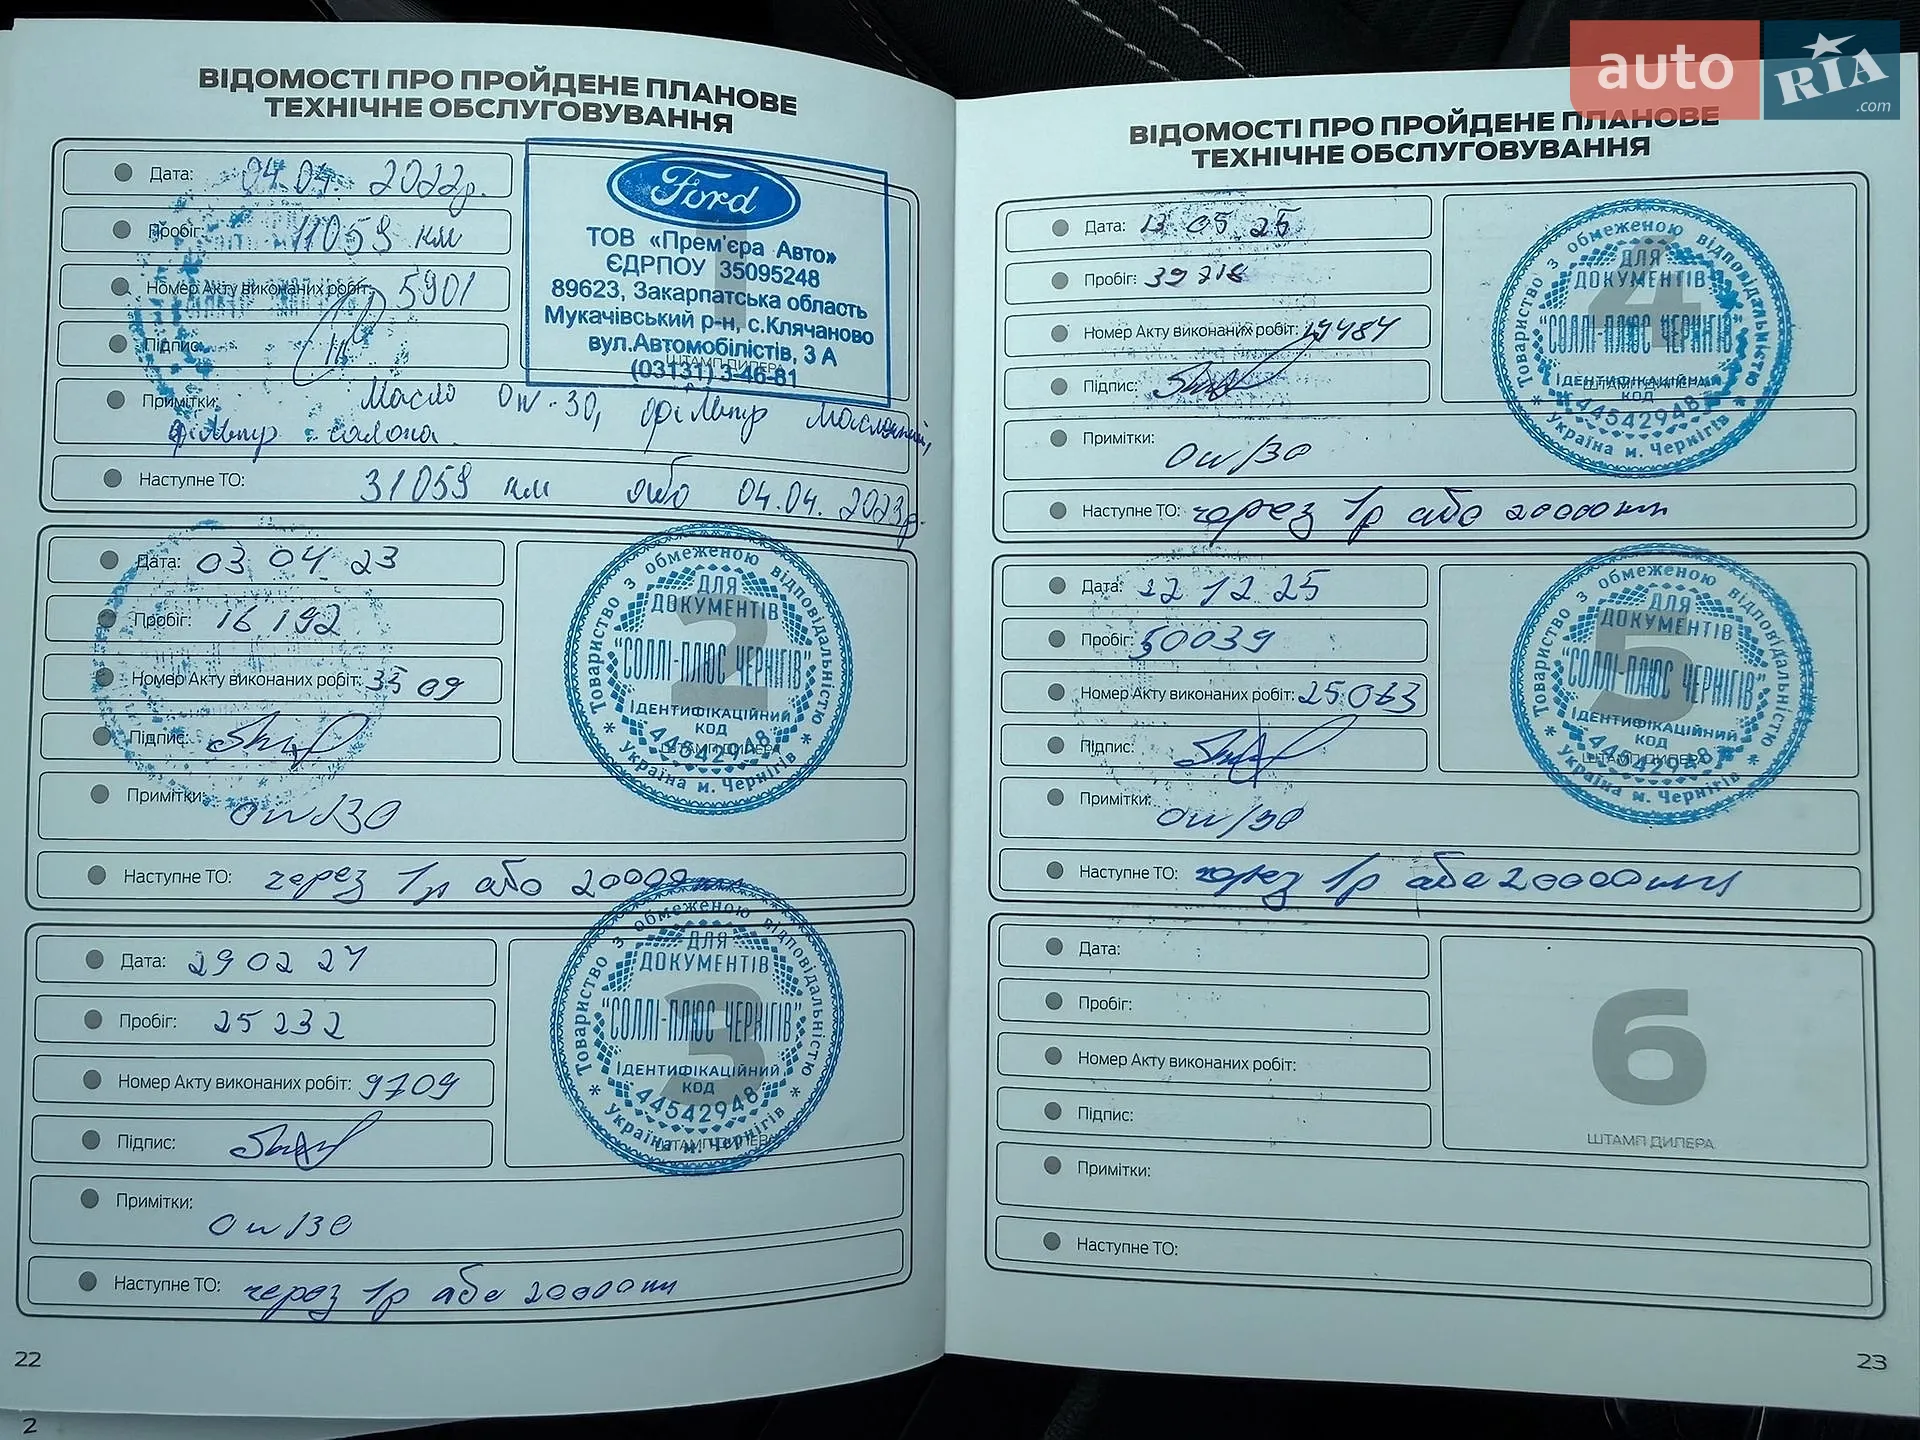 auto RIA .com
ВІДОМОСТІ ПРО ПРОЙДЕНЕ ПЛАНОВЕ
ТЕХНІЧНЕ ОБСЛУГОВУВАННЯ
Дата: 04.04. 2022р.
Пробіг: 11059 км
Номер Акту виконаних робіт: 5901
Підпис:
Ford
ТОВ «Прем'єра Авто»
ЄДРПОУ 35095248
89623, Закарпатська область
Мукачівський р-н, с.Клячаново
вул.Автомобілістів, 3 А
(03131) 3-46-81
1
ШТАМП ДИЛЕРА
Примітки: Масло 0w-30, фільтр масляний,
фільтр салона.
Наступне ТО: 31059 км або 04.04. 2023р.
Дата: 03 04 23
Пробіг: 16 192
Номер Акту виконаних робіт: 3509
Підпис:
Товариство з обмеженою відповідальністю
ДЛЯ
ДОКУМЕНТІВ
"СОЛЛІ-ПЛЮС ЧЕРНІГІВ"
ІДЕНТИФІКАЦІЙНИЙ
КОД
44542948
* Україна м. Чернігів *
2
ШТАМП ДИЛЕРА
Примітки: 0w/30
Наступне ТО: через 1р або 20000км
Дата: 29 02 24
Пробіг: 25 232
Номер Акту виконаних робіт: 9709
Підпис:
Товариство з обмеженою відповідальністю
ДЛЯ
ДОКУМЕНТІВ
"СОЛЛІ-ПЛЮС ЧЕРНІГІВ"
ІДЕНТИФІКАЦІЙНИЙ
КОД
44542948
* Україна м. Чернігів *
3
ШТАМП ДИЛЕРА
Примітки:
0w/30
Наступне ТО: через 1р або 20000км
22
2
ВІДОМОСТІ ПРО ПРОЙДЕНЕ ПЛАНОВЕ
ТЕХНІЧНЕ ОБСЛУГОВУВАННЯ
Дата: 13 05 25
Пробіг: 39 218
Номер Акту виконаних робіт: 19484
Підпис:
Товариство з обмеженою відповідальністю
ДЛЯ
ДОКУМЕНТІВ
"СОЛЛІ-ПЛЮС ЧЕРНІГІВ"
ІДЕНТИФІКАЦІЙНИЙ
КОД
44542948
* Україна м. Чернігів *
4
ШТАМП ДИЛЕРА
Примітки:
0w/30
Наступне ТО: через 1р або 20000км
Дата: 22 12 25
Пробіг: 50039
Номер Акту виконаних робіт: 25063
Підпис:
Товариство з обмеженою відповідальністю
ДЛЯ
ДОКУМЕНТІВ
"СОЛЛІ-ПЛЮС ЧЕРНІГІВ"
ІДЕНТИФІКАЦІЙНИЙ
КОД
44542948
* Україна м. Чернігів *
5
ШТАМП ДИЛЕРА
Примітки:
0w/30
Наступне ТО: через 1р або 20000км
Дата:
Пробіг:
Номер Акту виконаних робіт:
Підпис:
6
ШТАМП ДИЛЕРА
Примітки:
Наступне ТО:
23